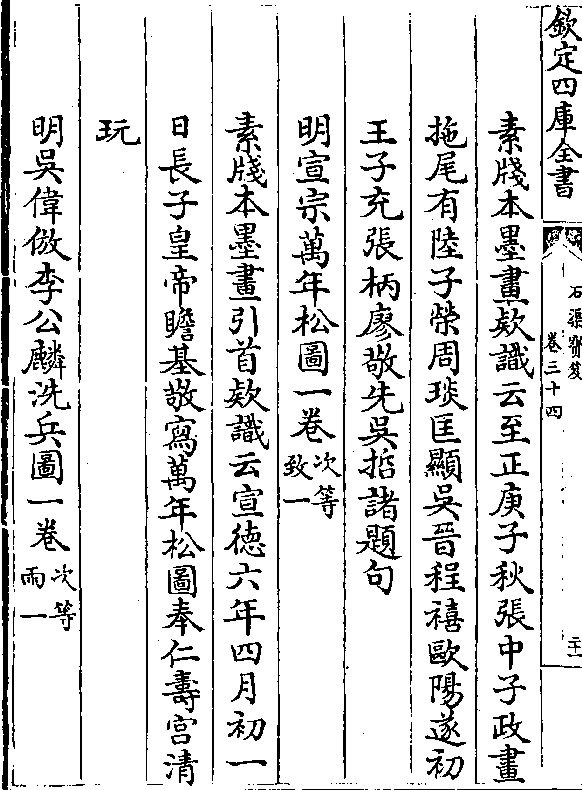 欽定四庫全書
石渠寶笈
卷三十四
二十一
素牋本墨畫欵識云至正庚子秋張中子政畫
拖尾有陸子榮周琰匡顯吳晉程禧歐陽遂初
王子充張柄廖敬先吳哲諸題句
明宣宗萬年松圖一卷次等致一
素牋本墨畫引首欵識云宣德六年四月初一
日長子皇帝瞻基敬寫萬年松圖奉仁壽宮清
玩
明吳偉倣李公麟洗兵圖一卷次等雨一